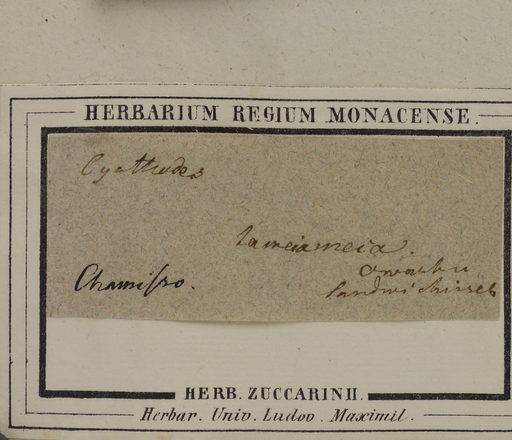 HERBARIUM REGIUM MONACENSE.
Cyathodes
Tameiameia.
Owaihu
Chamisso.
HERB. ZUCCARINII.
Herbar. Univ. Ludov. Maximil.